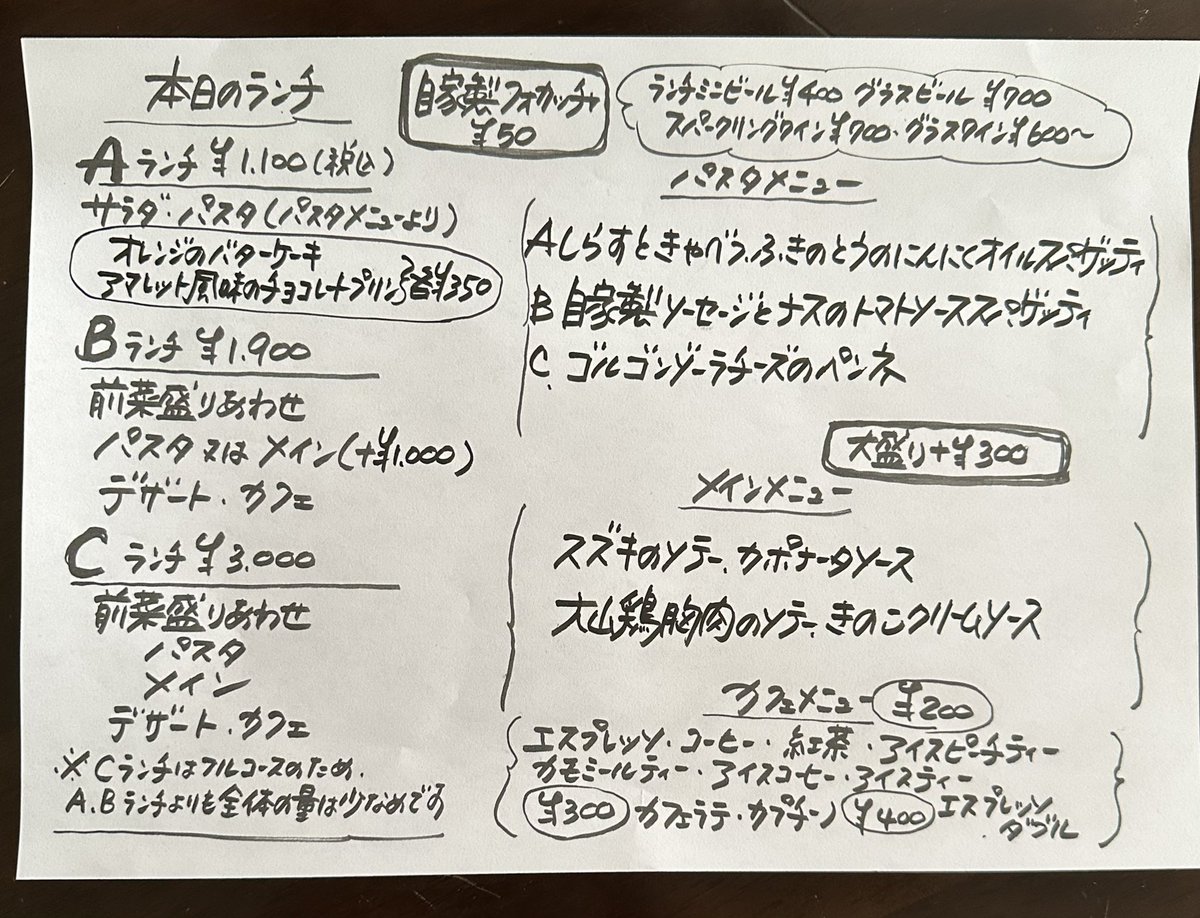 本日のランチ
Aランチ ¥1.100(税込)
サラダ・パスタ(パスタメニューより)
オレンジのバターケーキ
アマレット風味のチョコレートプリン 各¥350
Bランチ ¥1.900
前菜盛りあわせ
パスタ又はメイン(+¥1.000)
デザート・カフェ
Cランチ ¥3.000
前菜盛りあわせ
パスタ
メイン
デザート・カフェ
※Cランチはフルコースのため、
A、Bランチよりも全体の量は少なめです
自家製フォカッチャ
¥50
ランチミニビール¥400 グラスビール ¥700
スパークリングワイン¥700・グラスワイン¥600〜
パスタメニュー
A しらすときゃべつ、ふきのとうのにんにくオイルスパゲッティ
B 自家製ソーセージとナスのトマトソーススパゲッティ
C、ゴルゴンゾーラチーズのペンネ
大盛り+¥300
メインメニュー
スズキのソテー、カポナータソース
大山鶏胸肉のソテー、きのこクリームソース
カフェメニュー ¥200
エスプレッソ・コーヒー・紅茶・アイスピーチティー
カモミールティー・アイスコーヒー・アイスティー
¥300 カフェラテ・カプチーノ ¥400 エスプレッソ
ダブル